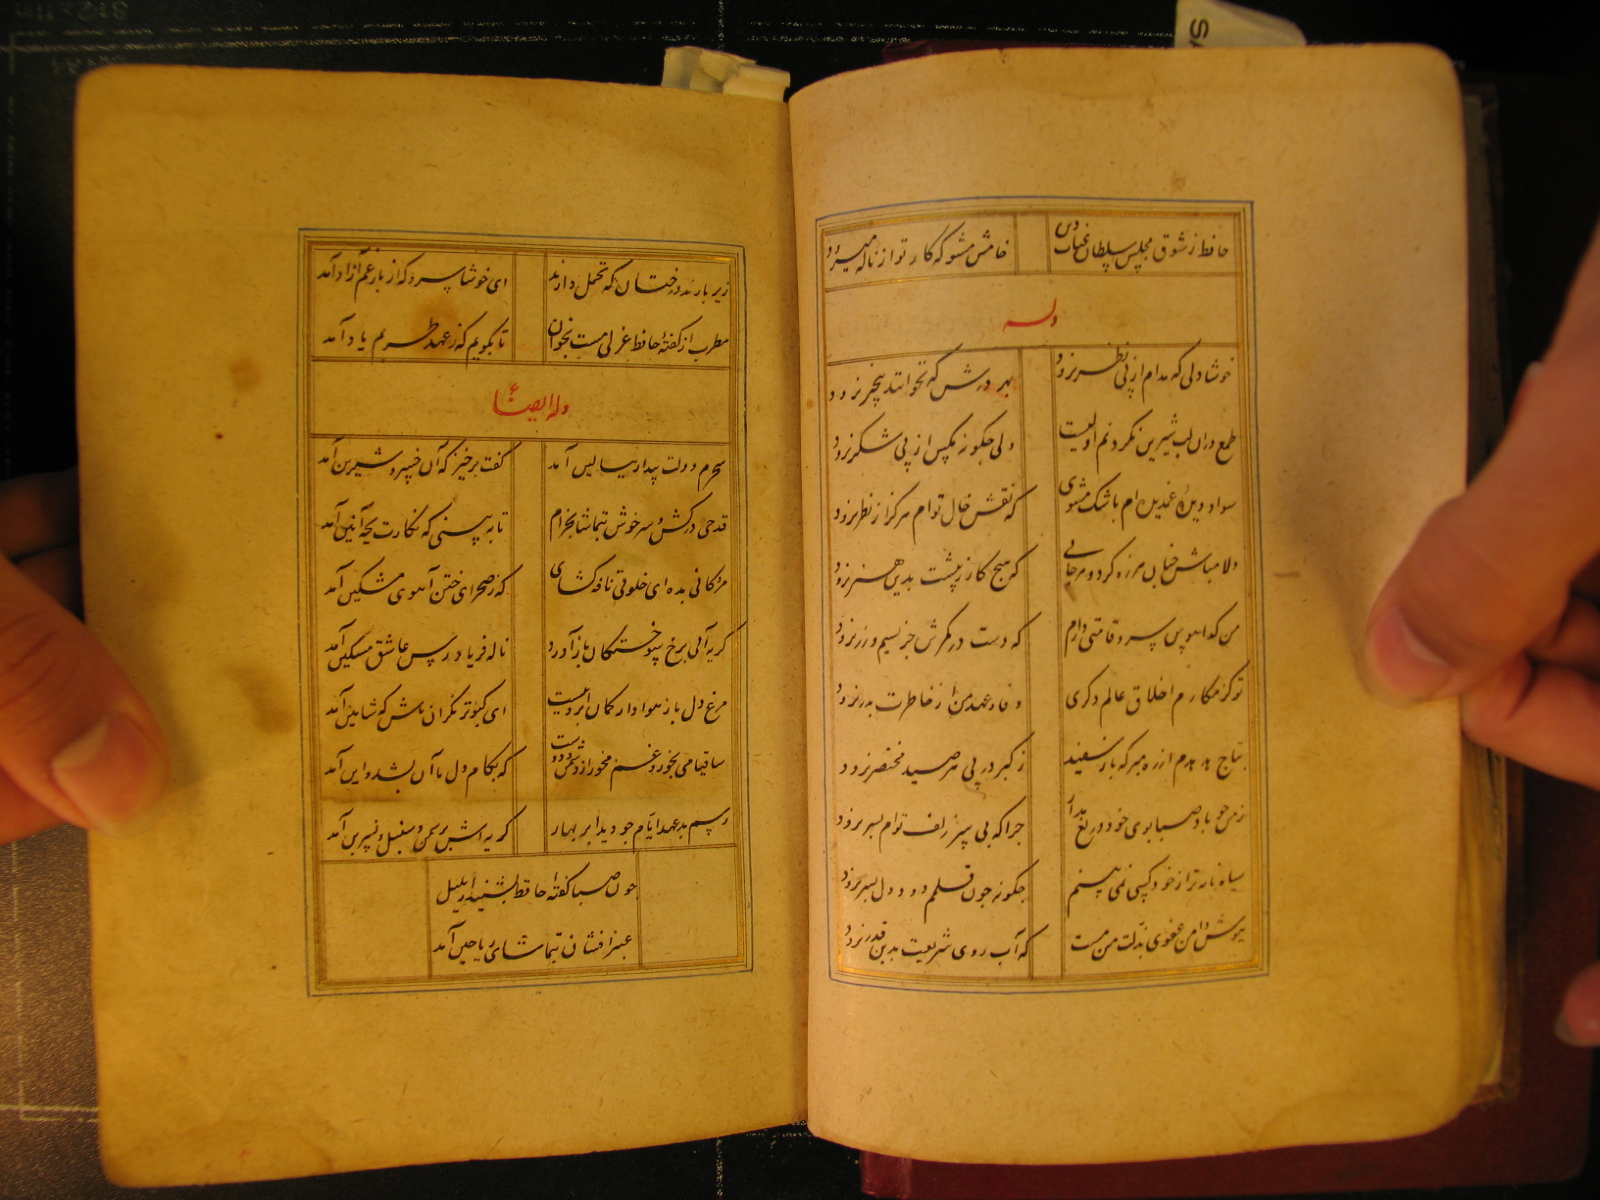 حافظ ز شوق مجلس سلطان غیاث دین خامش مشو که کار تو از ناله میرود
وله
خوشا دلی که مدام از پی نظر نرود بهر درش که نخوانند بیخبر نرود
طمع دران لب شیرین نکردنم اولیست ولی چکونه مکس از پی شکر نرود
سواد دیدهٔ غمدیده ام باشک مشوی که نقش خال توام هرکز از نظر نرود
دلا مباش چنان هرزه کرد و هرجایی که هیچ کار ز پیشت بدین هنر نرود
من کدا هوس سرو قامتی دارم که دست در کمرش جز بسیم و زر نرود
تو کز مکارم اخلاق عالم دکری وفا و عهد من از خاطرت بدر نرود
بتاج هدهدم از ره مبر که باز سفید ز کبر در پی هر صید مختصر نرود
ز من چو باد صبا بوی خود دریغ مدار چرا که بی سر زلف توام بسر نرود
سیاه نامه تر از خود کسی نمی بینم چکونه چون قلمم دود دل بسر نرود
بپوش دامن عفوی بذلت من مست که آب روی شریعت بدین قدر نرود
زیر بارند درختان که تحمل دارند ای خوشا سرو که از بار غم آزاد آمد
مطرب از کفتهٔ حافظ غزلی مست بخوان تا بکویم که ز عهد طربم یاد آمد
وله ایضاً
سحرم دولت بیدار ببالین آمد کفت برخیز که آن خسرو شیرین آمد
قدحی درکش و سرخوش بتماشا بخرام تا به بینی که نکارت بچه آیین آمد
مژکانی بده ای خلوتی نافه کشای که ز صحرای ختن آهوی مشکین آمد
کریه آبی برخ سوختکان باز آورد ناله فریادرس عاشق مسکین آمد
مرغ دل باز هوادار کمان ابرویست ای کبوتر نکران باش که شاهین آمد
ساقیا می بخور و غم مخور از دشمن و دوست که بکام دل ما آن بشد و این آمد
رسم بدعهدی ایام چو دید ابر بهار کریه اش بر سمن و سنبل و نسرین آمد
چون صبا کفتهٔ حافظ بشنید از بلبل
عنبر افشان بتماشای ریاحین آمد